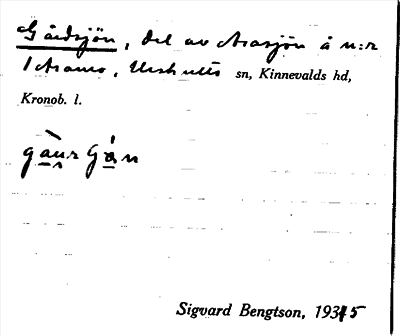 Gårdsjön, del av Åsasjön å n:r
1 Åsamo, Urshults sn, Kinnevalds hd,
Kronob. l.
Sigvard Bengtson, 1935